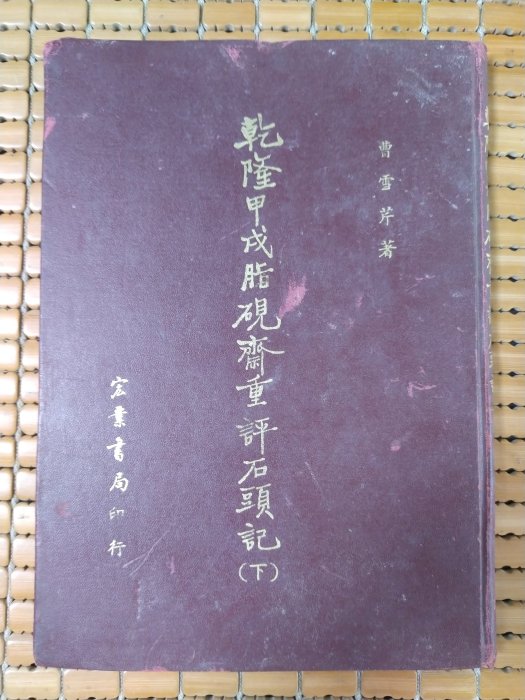 曹雪芹著
乾隆甲戌脂硯齋重評石頭記(下)
宏業書局印行